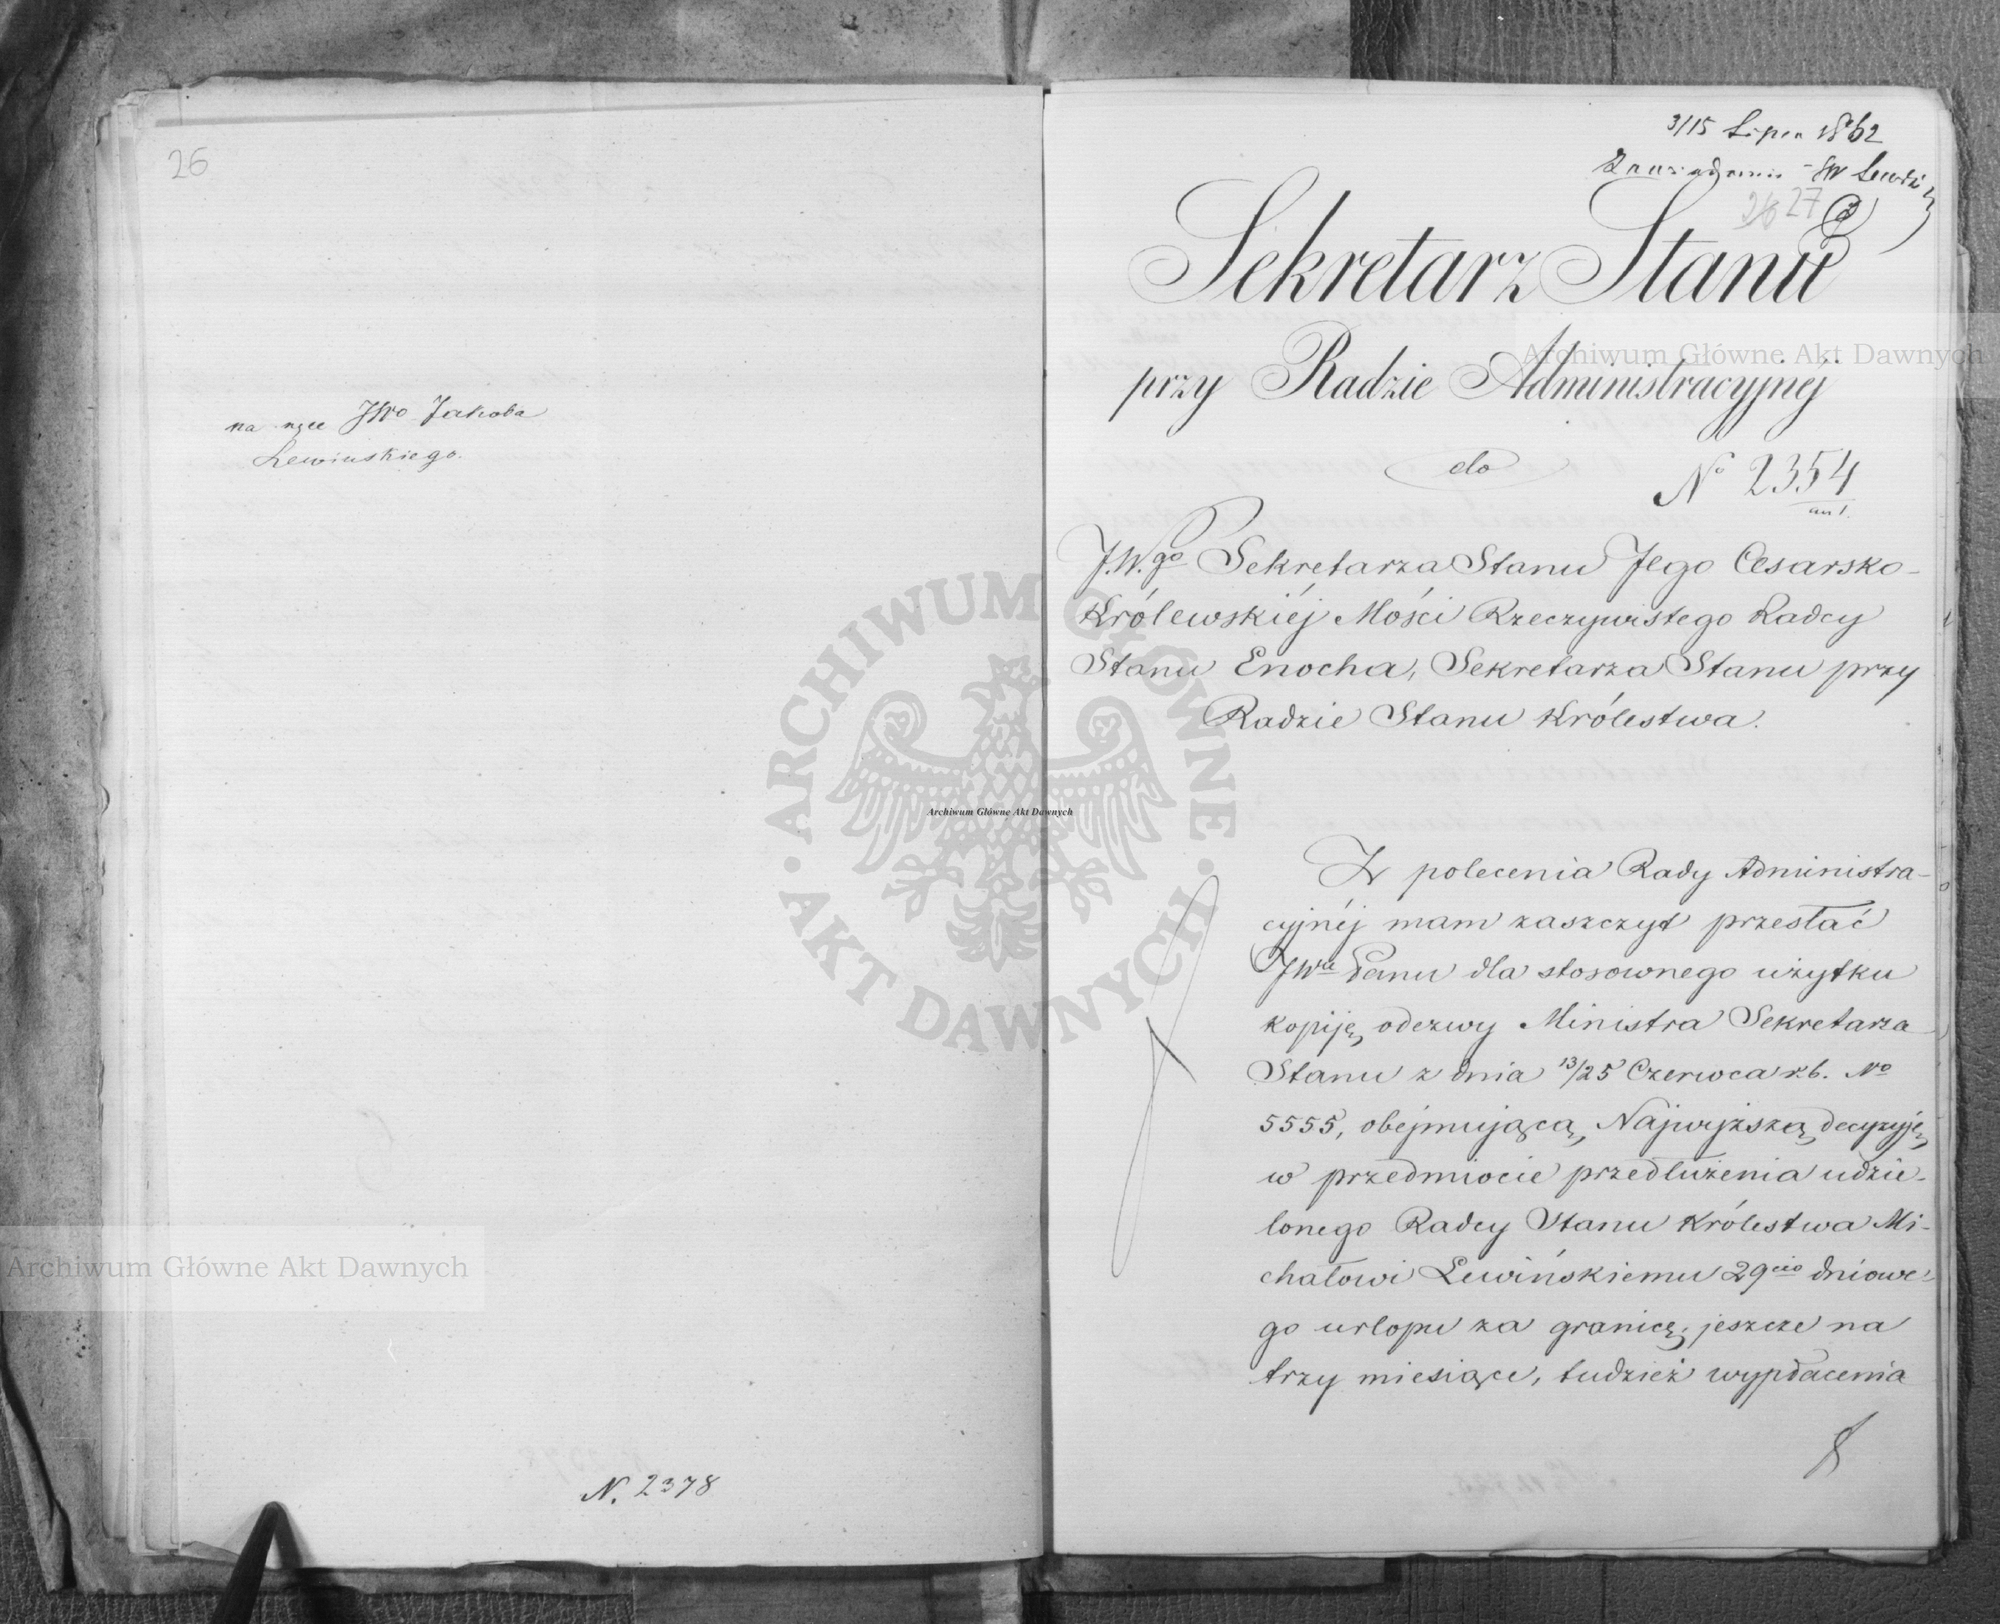 26
na ręce JWo Jakoba
Lewinskiego.
N. 2378
3/15 Lipca 1862
Zawiadomic JW Lewiń
26 27
Sekretarz Stanu
przy Radzie Administracyjnéj
do
No 2354
J.W.go Sekretarza Stanu Jego Cesarsko-
Królewskiéj Mości Rzeczywistego Radcy
Stanu Enocha, Sekretarza Stanu przy
Radzie Stanu Królestwa.
Z polecenia Rady Administra-
cyjnéj mam zaszczyt przesłać
JWu Panu dla stosownego użytku
kopiję odezwy Ministra Sekretarza
Stanu z dnia 13/25 Czerwca r.b. No
5555, obejmującą Najwyższą decyzyję
w przedmiocie przedłużenia udzie-
lonego Radcy Stanu Królestwa Mi-
chałowi Lewińskiemu 29cio dniowe-
go urlopu za granicę, jeszcze na
trzy miesiące, tudzież wypłacenia
Archiwum Główne Akt Dawnych
Archiwum Główne Akt Dawnych
Archiwum Główne Akt Dawnych
ARCHIWUM GŁÓWNE · AKT DAWNYCH ·